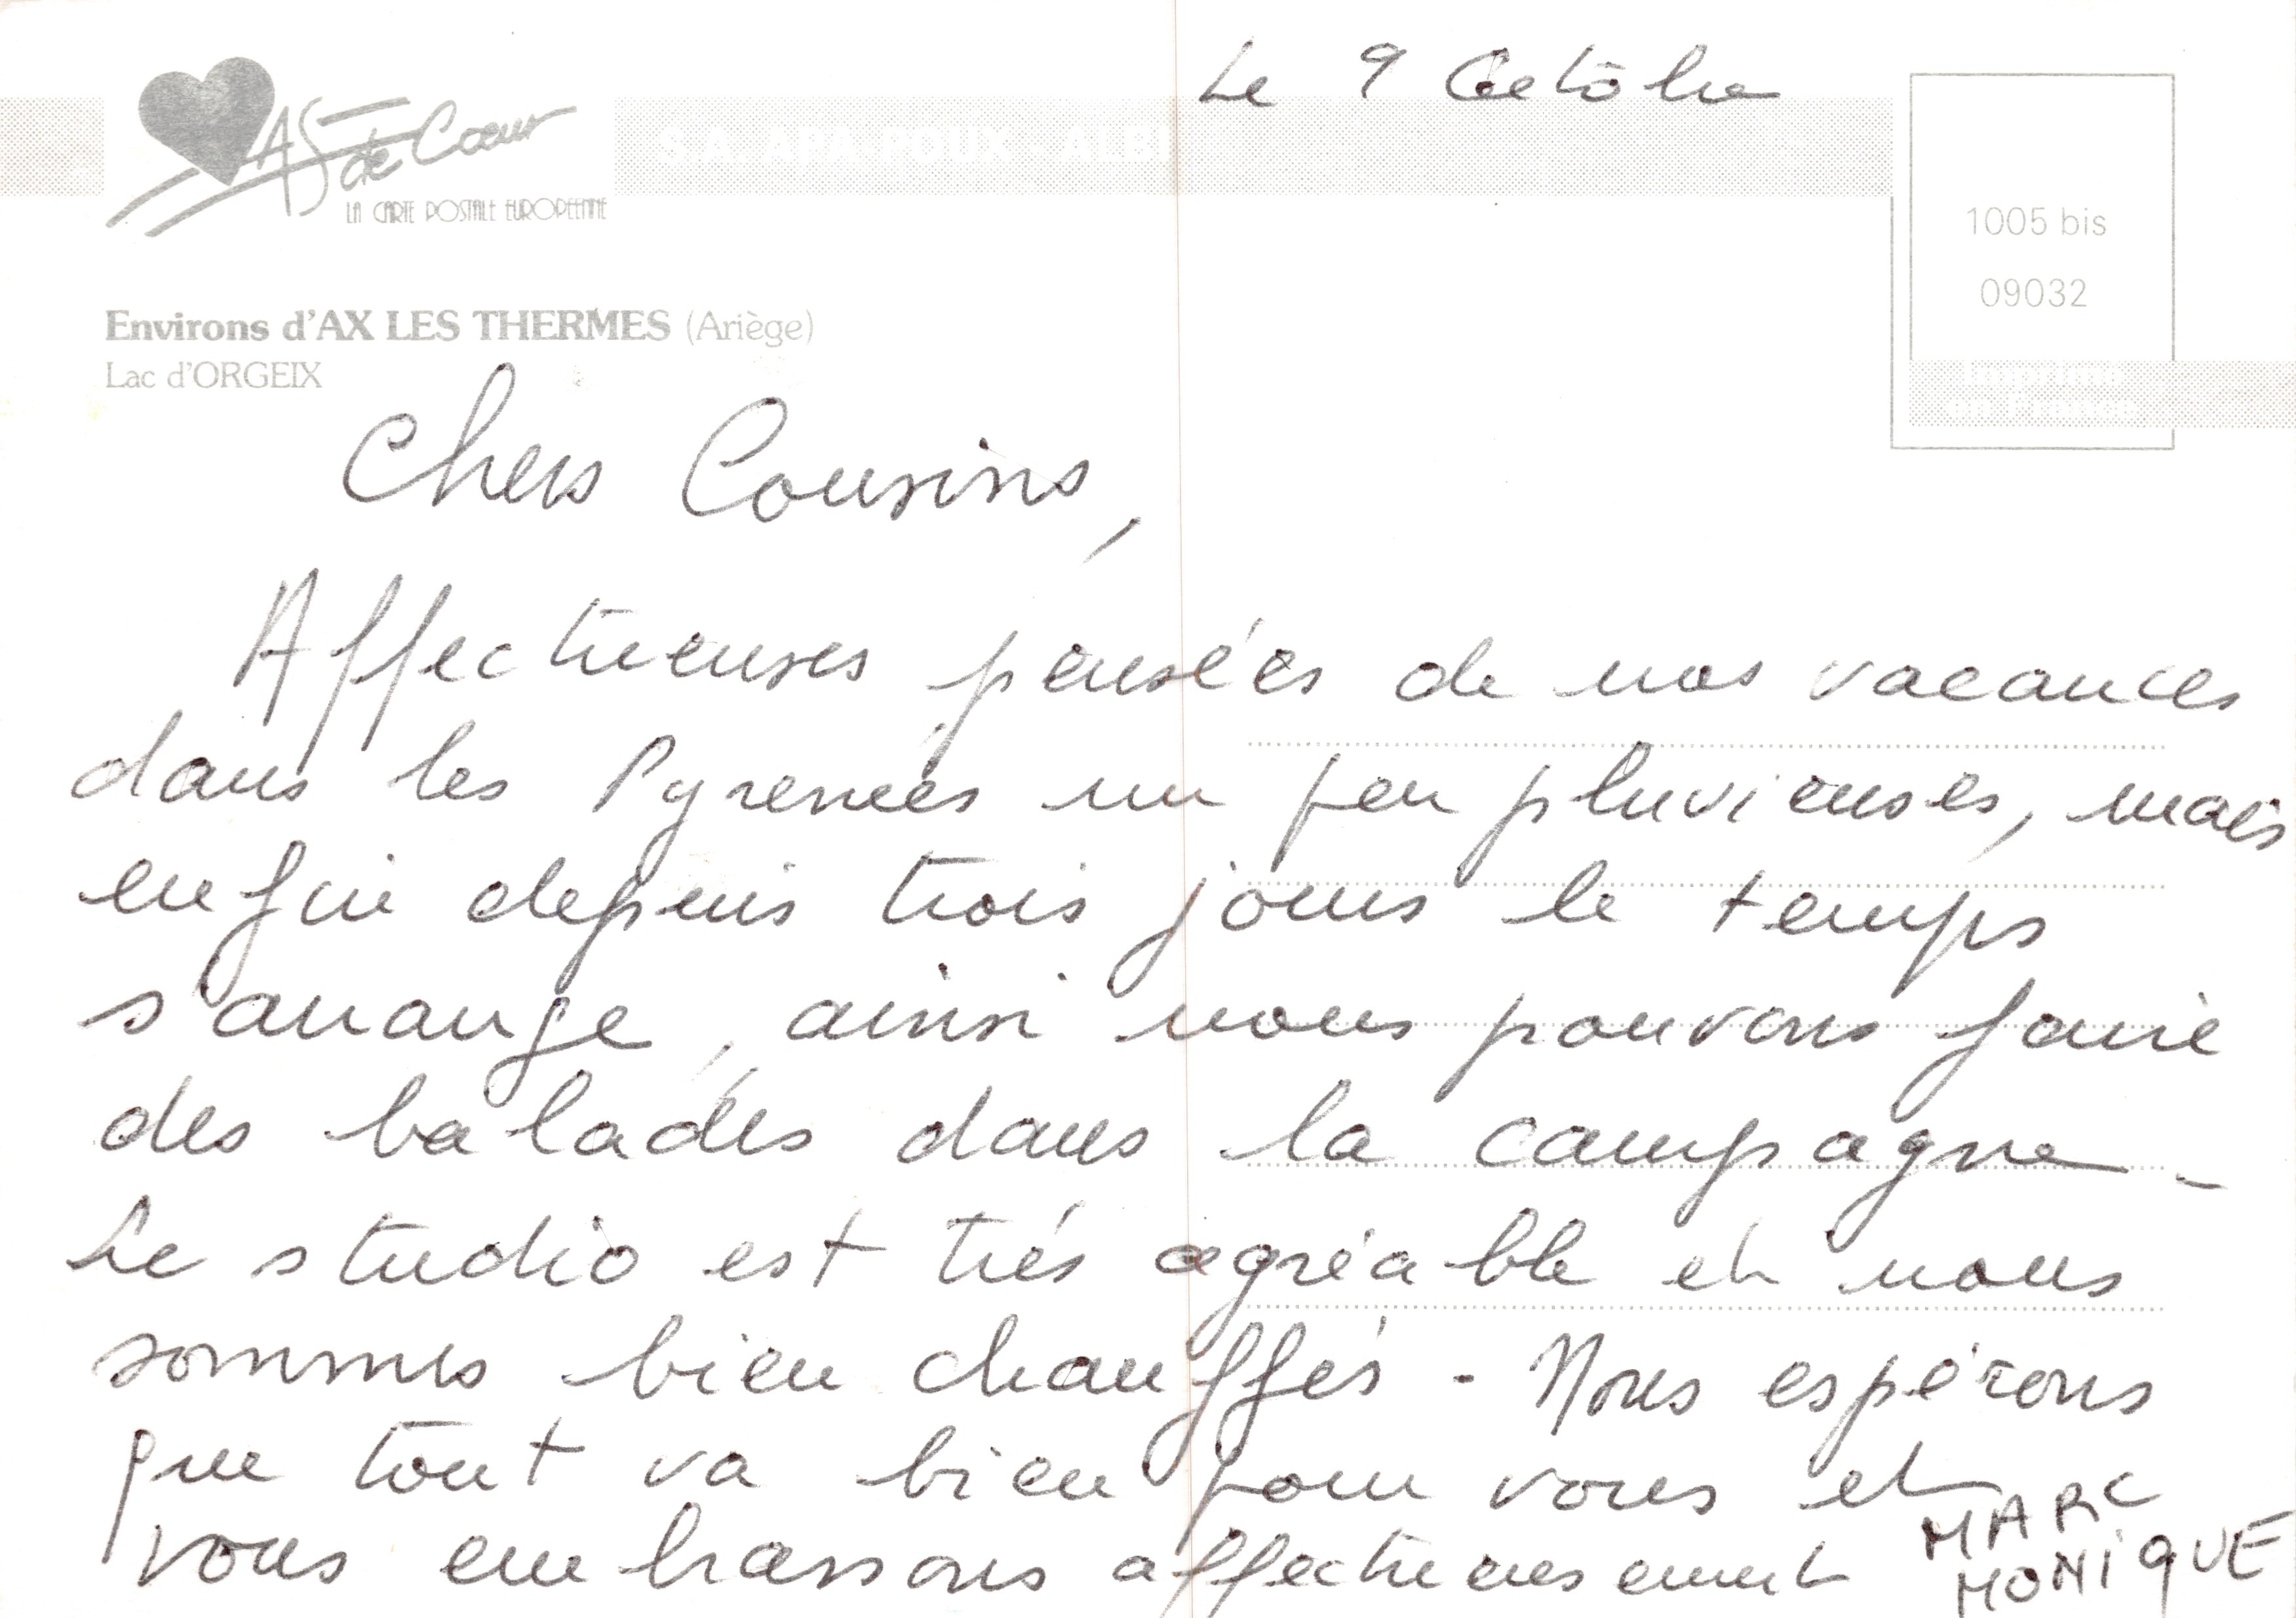 Le 9 Octobre
AS de Coeur
S.A. APA-POUX - ALBI
LA CARTE POSTALE EUROPEENNE
1005 bis
09032
Environs d'AX LES THERMES (Ariège)
Lac d'ORGEIX
Imprimé
en France
Chers Cousins,
Affectueuses pensées de nos vacances
dans les Pyrenées un peu pluvieuses, mais
enfin depuis trois jours le temps
s'arrange, ainsi nous pouvons faire
des balades dans la campagne -
Le studio est trés agréable et nous
sommes bien chauffés - Nous espérons
que tout va bien pour vous et
vous embrassons affectueusement
MARC
MONiQUE